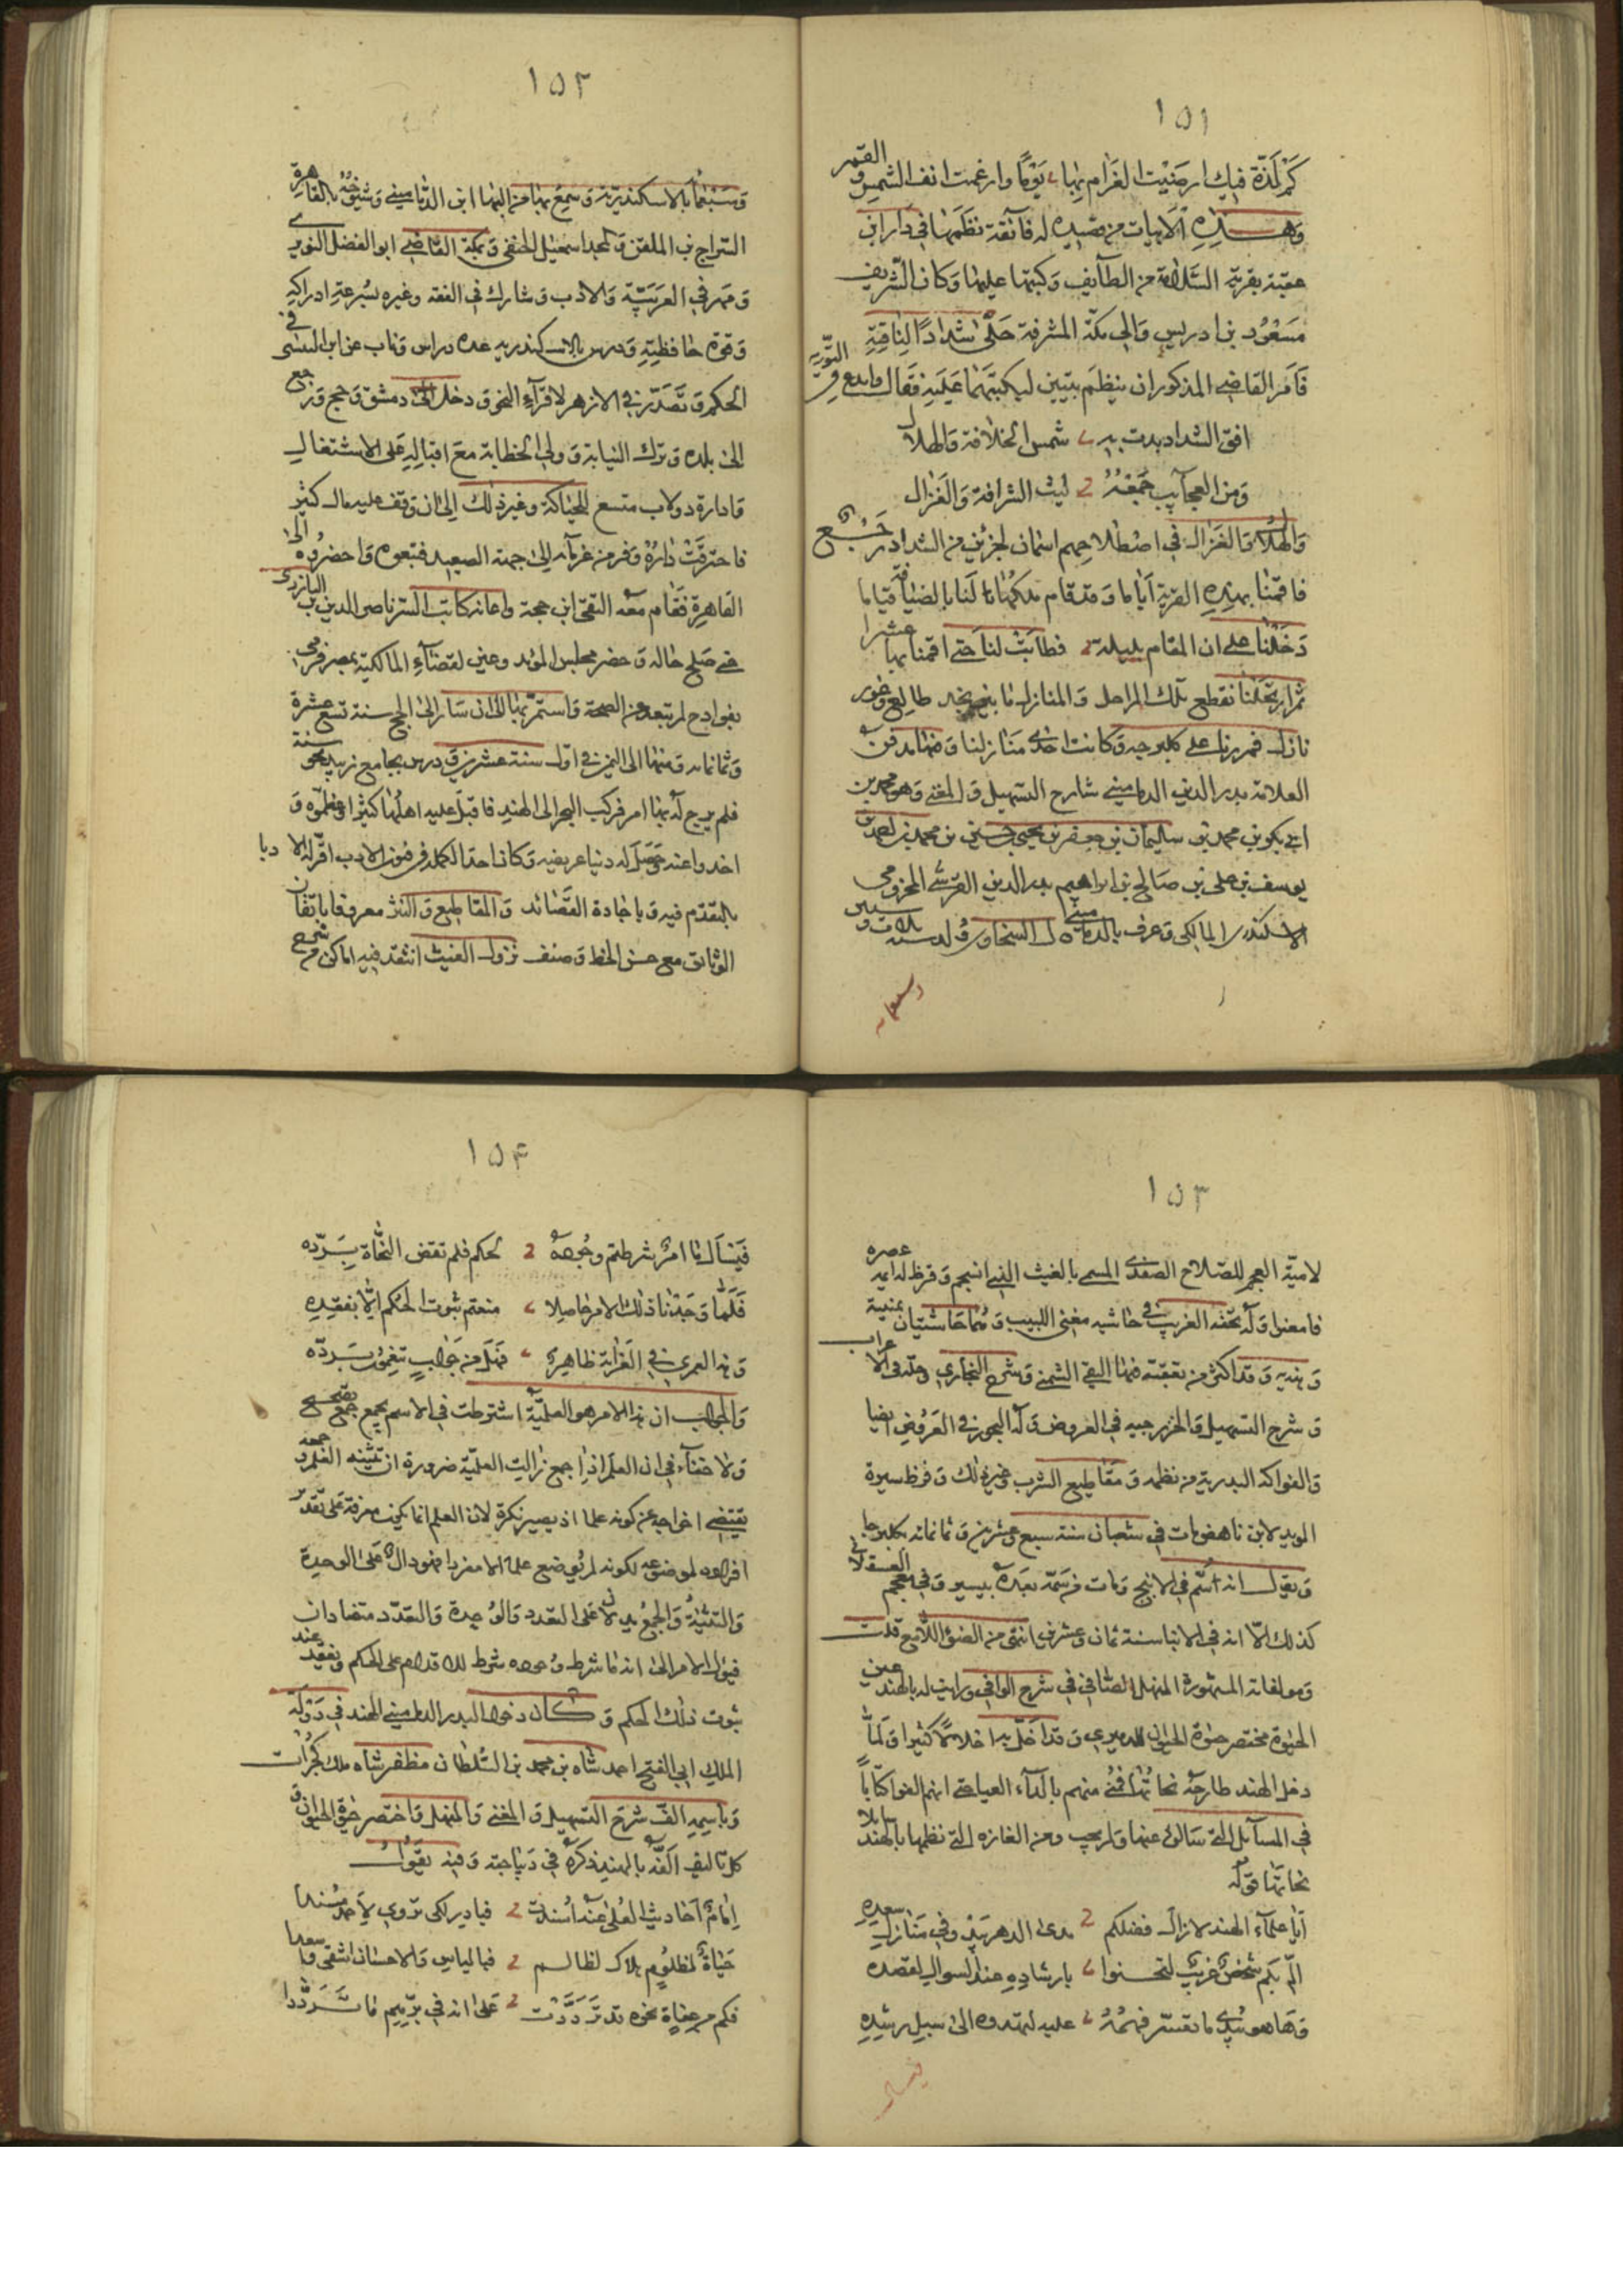 ١٥١
كم لذة فيك ارضيت الغرام بها يوما وارغمت انف الشمس والقمر
وهذه الابيات من قصيدة له فائقة نظمها في دار ابن
عقبة بقرية السلامة من الطايف وكتبها عليها وكان الشريف
مسعود بن ادريس والي مكة المشرفة حلى شدادا لناقته
فامر القاضي المذكور ان ينظم بيتين ليكتبهما عليه فقال وابدع في التورية
افق الشداد بدت به شمس الخلافة والهلال
ومن العجآيب جمعه ليث الشرافة والغزال
والهلال والغزال في اصطلاحهم اسمان لجزئين من الشداد
فاقمنا بهذه القرية اياما وقد قام ملكها لنا بالضيافة قياما
دخلنا على ان المقام بليلة فطابت لنا حتى اقمنا بها عشرا
ثم ارتحلنا نقطع تلك المراحل والمنازل ما بين نجد طالع وغور
نازل فمررنا على كلبرجه وكانت احدى منازلنا وبها مدفن
العلامة بدر الدين الدماميني شارح التسهيل والمغني وهو محمد بن
ابي بكر بن محمد بن سليمان بن جعفر بن يحيى بن حسين بن محمد بن احمد بن
يوسف بن علي بن صالح بن ابراهيم بدر الدين القرشي المخزومي
الاسكندري المالكي وعرف بالدماميني قال السخاوي ولد سنة ثلاث وستين
وسبعمائة
١٥٢
وسبعمائة بالاسكندرية وسمع بها من البها ابن الدماميني وشيوخه بالقاهرة
السراج بن الملقن والمجد اسمعيل الحنفي وبمكة القاضي ابو الفضل النويري
ومهر في العربية والادب وشارك في الفقه وغيره بسرعة ادراكه
وقوة حافظيته ودرس بالاسكندريه عدة دراس وناب عن ابن التنسي في
الحكم وتصدر في الازهر لاقرآء النحو ودخل الى دمشق وحج ورجع
الى بلده وترك النيابة وولي الخطابة مع اقباله على الاشتغال
وادارة دولاب متسع للحياكة وغير ذلك الى ان وقف عليه مال كثير
فاحترقت داره وفر من غرمآئه الى جهة الصعيد فتبعوه واحضروه الى
القاهرة فقام معه التقي ابن حجة واعانه كاتب السر ناصر الدين بن البارزي
حتى صلح حاله وحضر مجلس المؤيد وعين لقضآء المالكية بمصر فرمي
بقوادح لم تبعد عن الصحة واستمر بها الى ان سار الى الحج سنة تسع عشرة
وثمانمائه ومنها الى اليمن في اول سنة عشرين ودرس بجامع زبيد نحو سنة
فلم يرج له بها امر فركب البحر الى الهند فاقبل عليه اهلها كثيرا وعظموه و
اخذوا عنه وحصل له دنيا عريضه وكان احد الكملة في فنون الادب اقر له الادبا
بالتقدم فيه وباجادة القصائد والمقاطيع والنثر معروفا باتقان
الوثائق مع حسن الخط وصنف نزول الغيث انتقد فيه اماكن من شرح
١٥٣
لامية العجم للصلاح الصفدي المسمى بالغيث الذي انسجم وقرظه له ايمة عصره
فامعنوا وله تحفة الغريب في حاشيه مغني اللبيب وهما حاشيتان يمنية
وهنديه وقد اكثر من تعقبه فيها التقي الشمني وشرح البخاري وجله في الاعراب
وشرح التسهيل والخزرجيه في العروض وله البحور في العروض ايضا
والفواكه البدرية من نظمه ومقاطيع الشرب وغير ذلك وقرظ سيرة
المويد لابن ناهض ومات في شعبان سنة سبع وعشرين وثمانمائه بكلبرجا
ويقال انه سم في الانبج ومات من سمه بعده بيسير وفي معجم العسقلاني
كذلك الا انه في الانبا سنة ثمان وعشرين انتهى من الضوء اللامع قلت
ومولفاته المشهورة المنهل الصافي في شرح الوافي ورايت له بالهند عين
الحيوة مختصر حيوة الحيوان للدميري وقد اخل به اخلالا كثيرا ولما
دخل الهند طارحه نحاتها منهم بالدآء العياحتى انهم الفوا كتابا
في المسآئل التي سالوه عنها ولم يجب ومن الغازه التي نظمها بالهند سايلا
نحاتها قوله
ايا علمآء الهند لا زال فضلكم مدى الدهر يبدو في منازل سعده
الم بكم شخص غريب لتحسنوا بارشاده عند السوال لقصده
وها هو يبدي ما تعسر فهمه عليه لتهدوه الى سبيل رشده
فيسأل
١٥٤
فيسأل ما امر شرطتم وجوده لحكم فلم تقض النحاة برده
فلما وجدنا ذلك الامر حاصلا منعتم ثبوت الحكم الا بفقده
وهذا لعمري في الغرابة ظاهر فهل من جواب تنعمون بسرده
والجواب ان هذا الامر هو العلمية اشترطت في الاسم يجمع جمع تصحيح
ولا خفآء في ان العلم اذا جمع زالت العلمية ضرورة ان تثنية العلم وجمعه
يقتضي اخراجه عن كونه علما اذ يصير نكرة لان العلم انما يكون معرفة على تقدير
افراده لموضوعه لكونه لم يوضع علما الا مفردا فهو دال على الوحدة
والتثنية والجمع يدلان على التعدد والوحدة والتعدد متضادان
فيؤل الامر الى انه ما شرط وجوده شرط للاقدام على الحكم وفقده عند
ثبوت ذلك الحكم وكان دخول البدر الدماميني الهند في دولة
الملك ابي الفتح احمد شاه بن محمد بن السلطان مظفر شاه ملك كجرات
وباسمه الف شرح التسهيل والمغني والمنهل واختصر حيوة الحيوان و
كل تاليف الفه بالهند ذكره في ديباجته وفيه يقول
امام احاديث العلى عنه اسندت فبادر لكي تروي لاحمد مسندا
حياة لمظلوم هلاك لظالم فبالباس والاحسان اشقى واسعدا
فكم من عفاة نحوه قد ترددت على انه في برهم ما ترددا